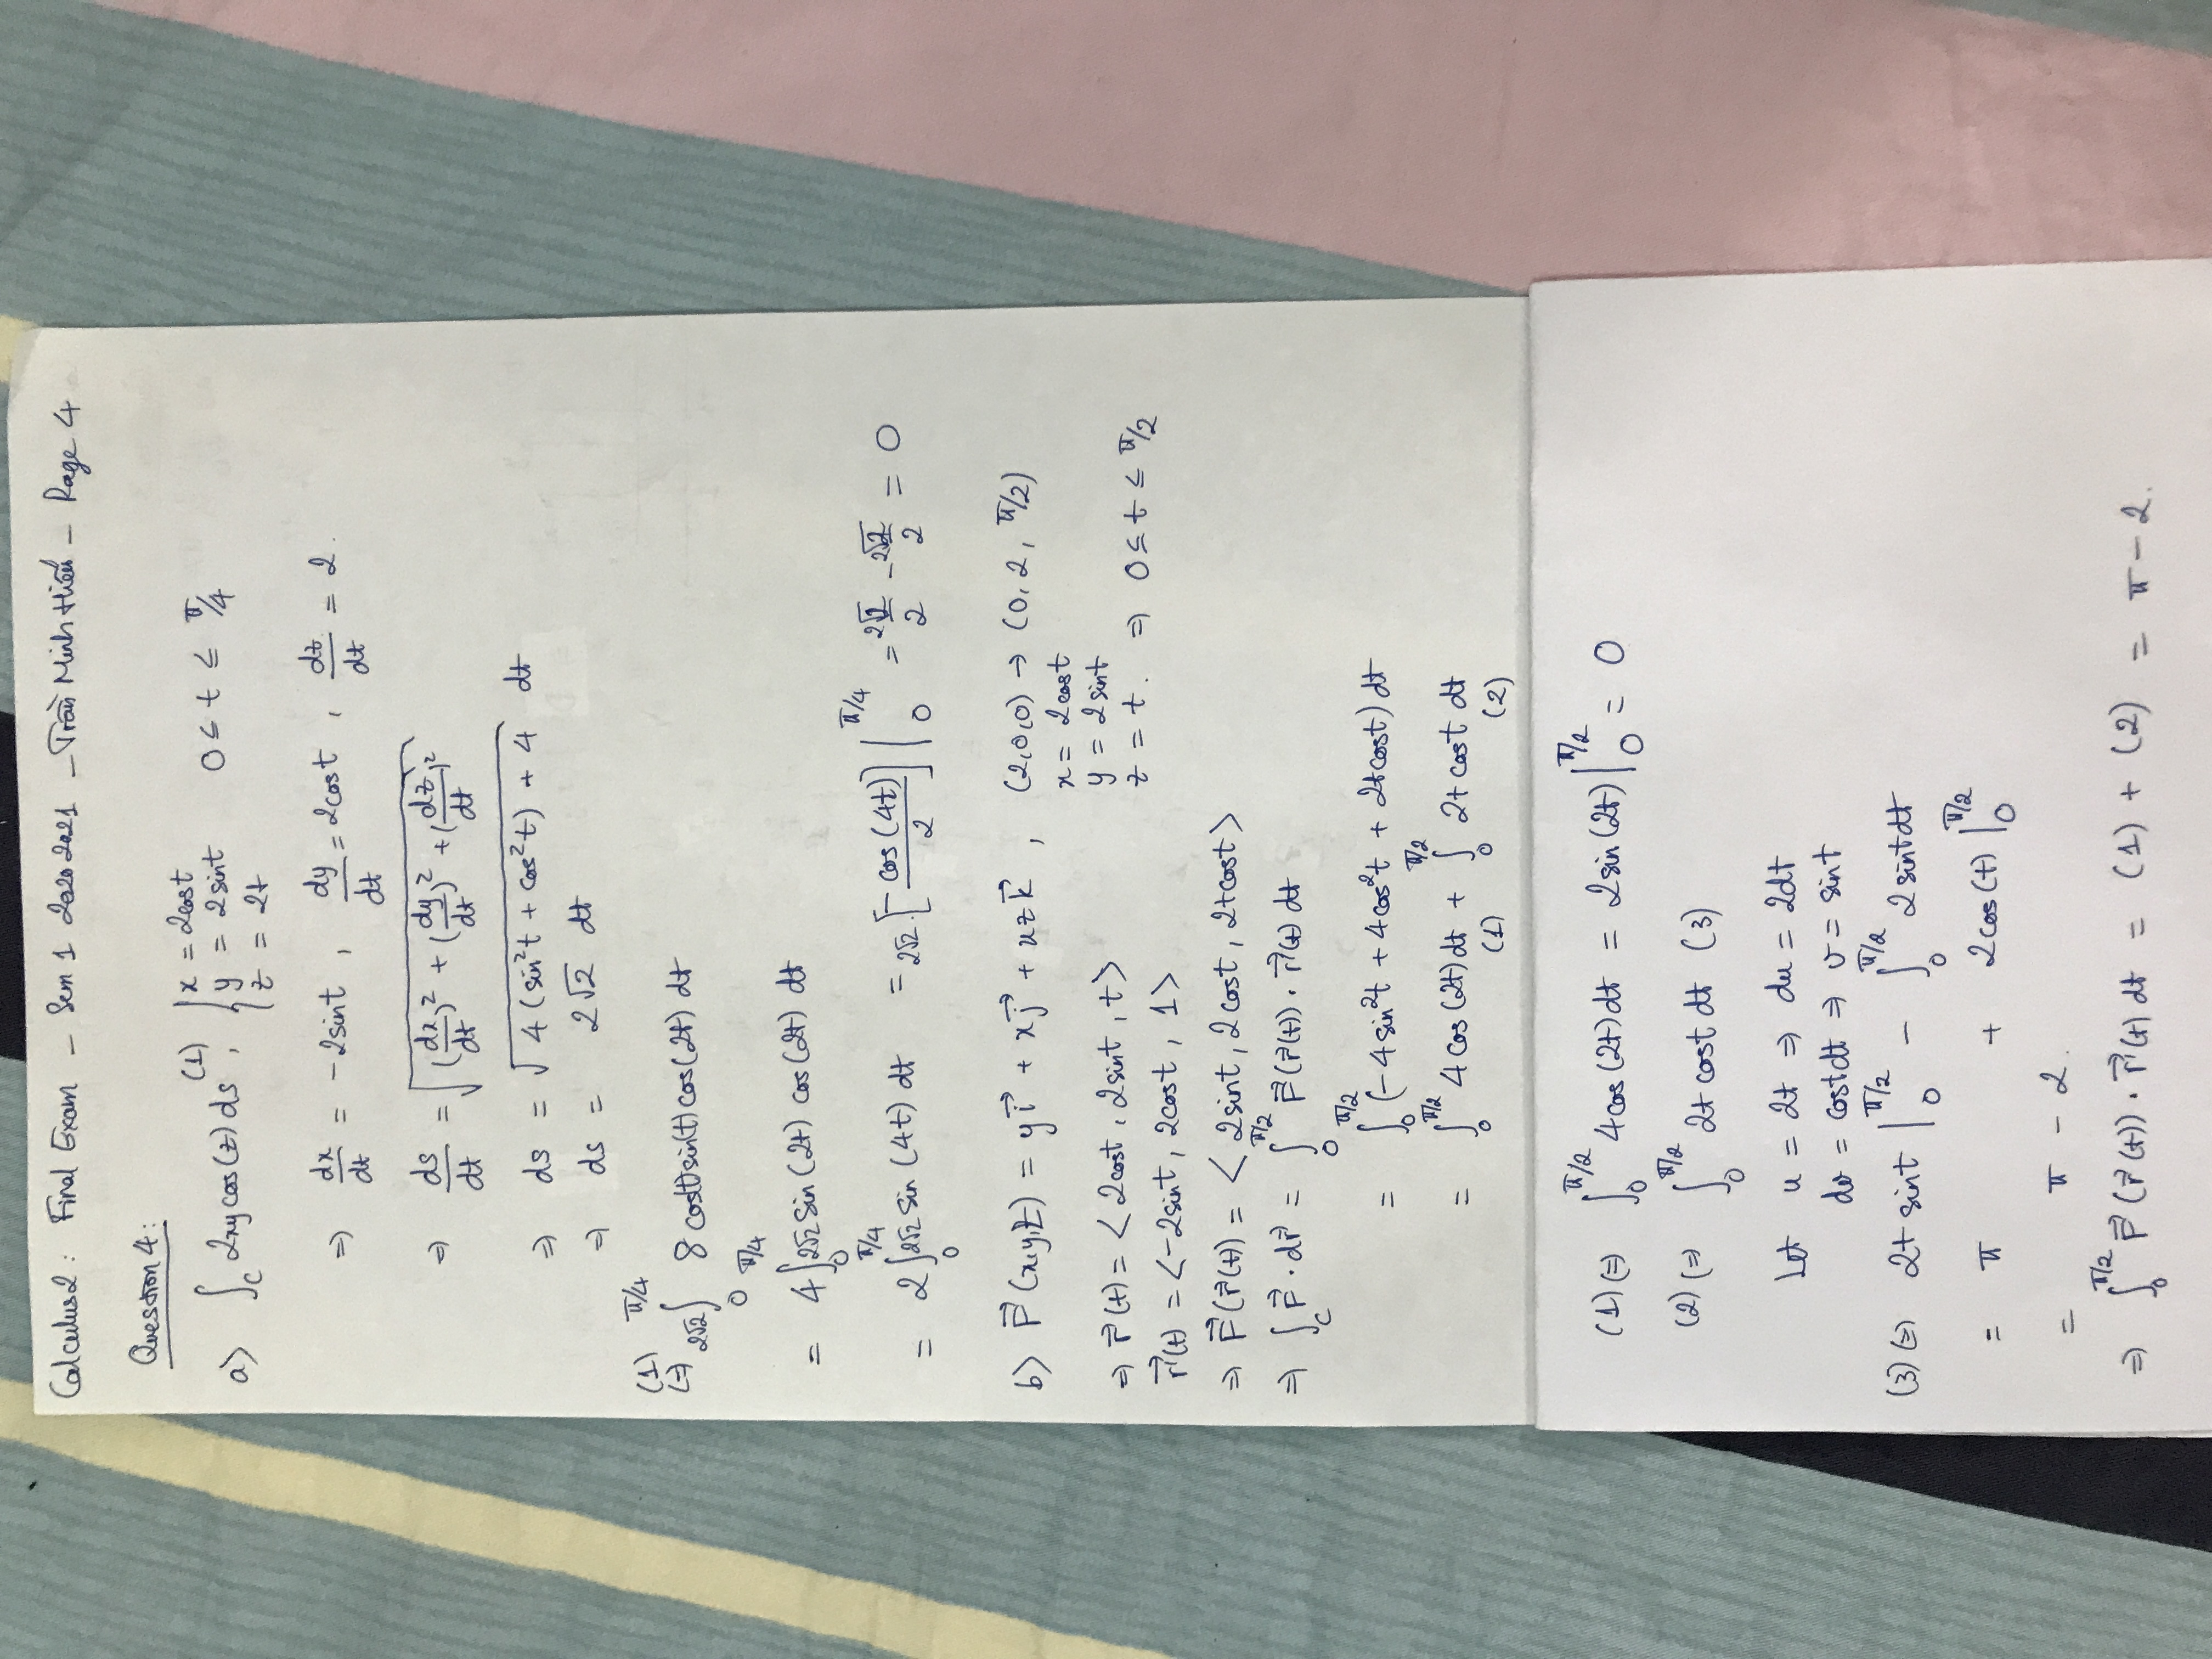 Calculus2 : Final Exam – Sem 1 2020 2021 – Trần Minh Hiếu – Page 4
Question 4:
a) ∫_C 2xy cos(z) ds (1) , { x = 2cost
y = 2sint
z = 2t
0 ≤ t ≤ π/4
⇒ dx/dt = -2sint , dy/dt = 2cost , dz/dt = 2.
⇒ ds/dt = √((dx/dt)² + (dy/dt)² + (dz/dt)²)
⇒ ds = √(4(sin²t + cos²t) + 4) dt
⇒ ds = 2√2 dt
(1) ⇔ 2√2 ∫_0^{π/4} 8 cos(t) sin(t) cos(2t) dt
= 4 ∫_0^{π/4} 2√2 sin(2t) cos(2t) dt
= 2 ∫_0^{π/4} 2√2 sin(4t) dt = 2√2.[-cos(4t)/2] |_0^{π/4} = 2√2/2 - 2√2/2 = 0
b) F⃗(x,y,z) = y i⃗ + x j⃗ + xz k⃗ , (2,0,0) → (0,2,π/2)
x = 2cost
y = 2sint
z = t. ⇒ 0 ≤ t ≤ π/2
⇒ r⃗(t) = <2cost, 2sint, t>
r⃗'(t) = <-2sint, 2cost, 1>
⇒ F⃗(r⃗(t)) = <2sint, 2cost, 2tcost>
⇒ ∫_C F⃗ · dr⃗ = ∫_0^{π/2} F⃗(r⃗(t)) · r⃗'(t) dt
= ∫_0^{π/2} (-4sin²t + 4cos²t + 2tcost) dt
= ∫_0^{π/2} 4cos(2t) dt + ∫_0^{π/2} 2t cost dt
(1) (2)
(1) ⇔ ∫_0^{π/2} 4cos(2t) dt = 2sin(2t) |_0^{π/2} = 0
(2) ⇔ ∫_0^{π/2} 2t cost dt (3)
Let u = 2t ⇒ du = 2dt
dv = costdt ⇒ v = sint
(3) ⇔ 2t sint |_0^{π/2} - ∫_0^{π/2} 2sintdt
= π + 2cos(t) |_0^{π/2}
= π - 2.
⇒ ∫_0^{π/2} F⃗(r⃗(t)) · r⃗'(t) dt = (1) + (2) = π - 2.